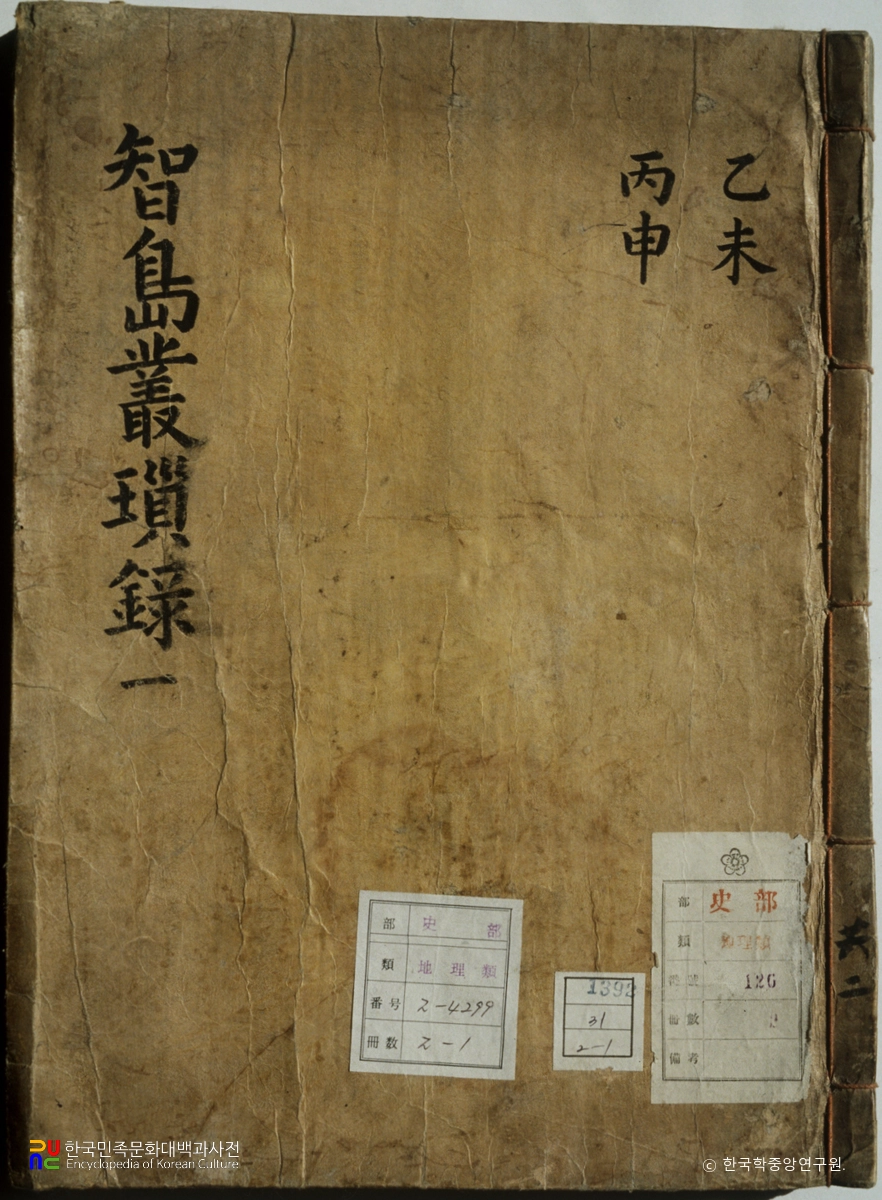 乙未
丙申
智島叢瑣錄 一
共二
部 史部
類 地理類
番号 2-4299
冊数 2-1
1393
31
2-1
部 史部
類 地理類
番號 126
冊數 2
備考
한국민족문화대백과사전
Encyclopedia of Korean Culture
ⓒ 한국학중앙연구원.